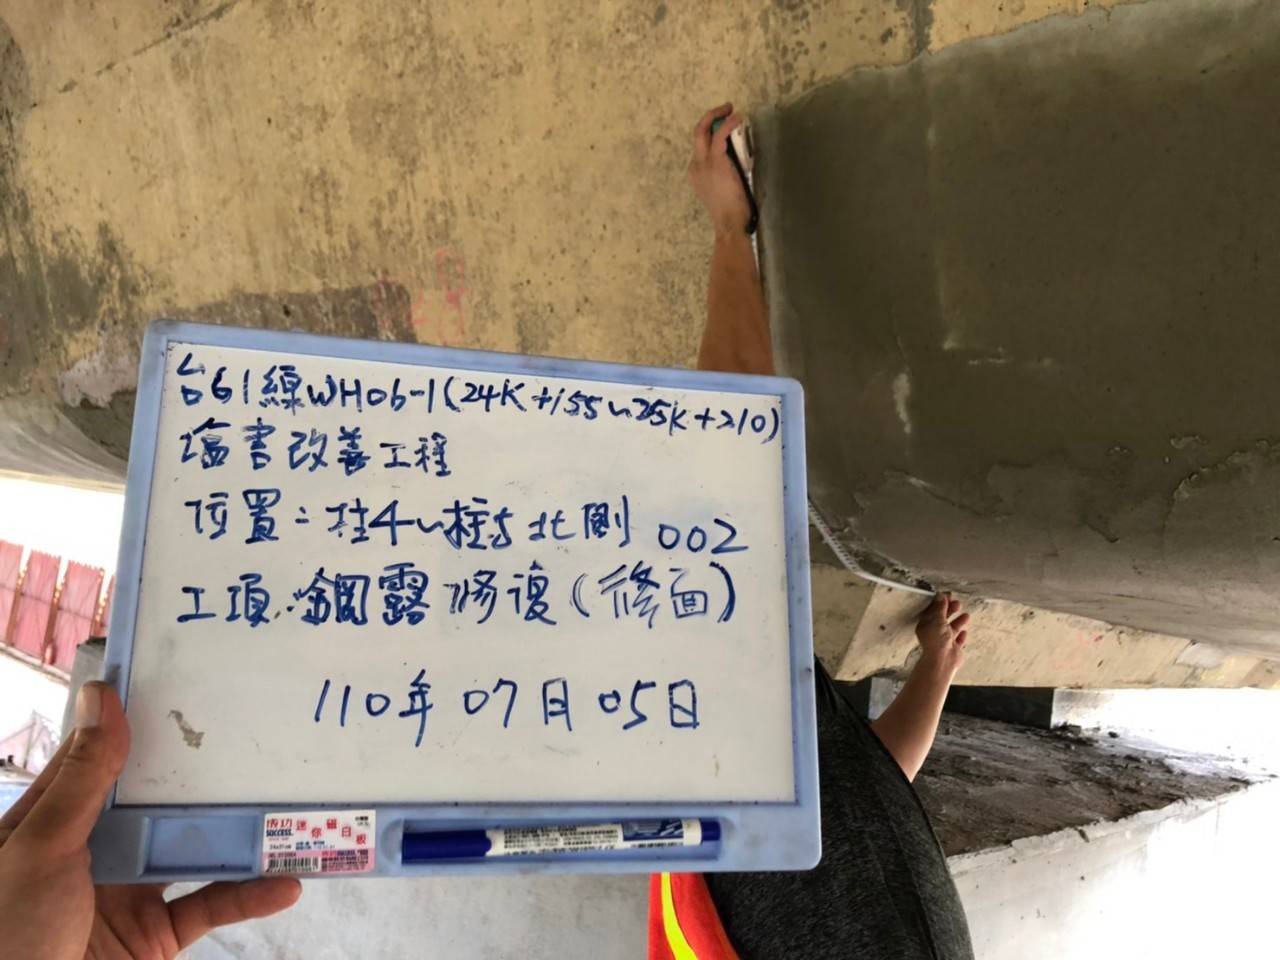 台61線WH06-1(24K+155~25K+210)
塩害改善工程
位置:柱4~柱5北側 002
工項:鋼露修復(修面)
110年07月05日
成功
SUCCESS
迷你磁白板